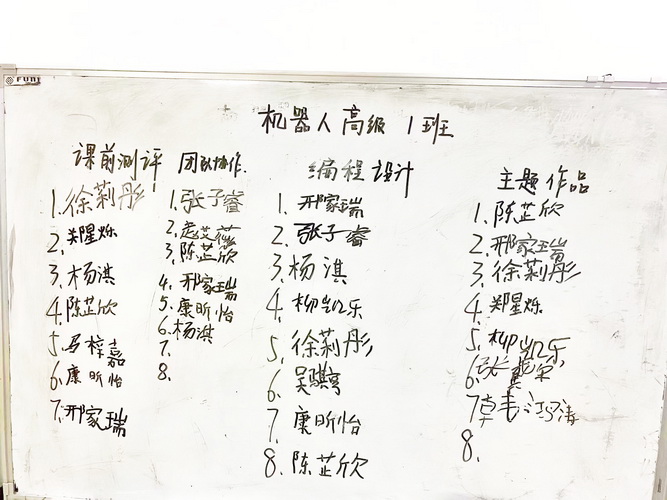 机器人高级1班
课前测评
1.徐莉彤
2.郑星烁
3.杨淇
4.陈芷欣
5.马梓嘉
6.康昕怡
7.邢家瑞
团队协作.
1.张子睿
2.
3.陈芷欣
4.邢家瑞
5.康昕怡
6.杨淇
7.
8.
编程设计
1.邢家瑞
2.张子睿
3.杨淇
4.柳凯乐
5.徐莉彤
6.吴骐亨
7.康昕怡
8.陈芷欣
主题作品
1.陈芷欣
2.邢家瑞
3.徐莉彤
4.郑星烁
5.柳凯乐
6.张
7.
8.